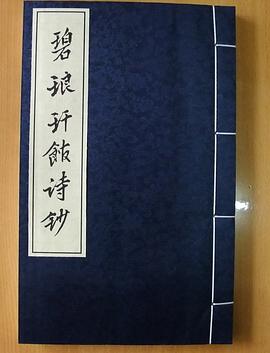 碧琅玕馆诗钞